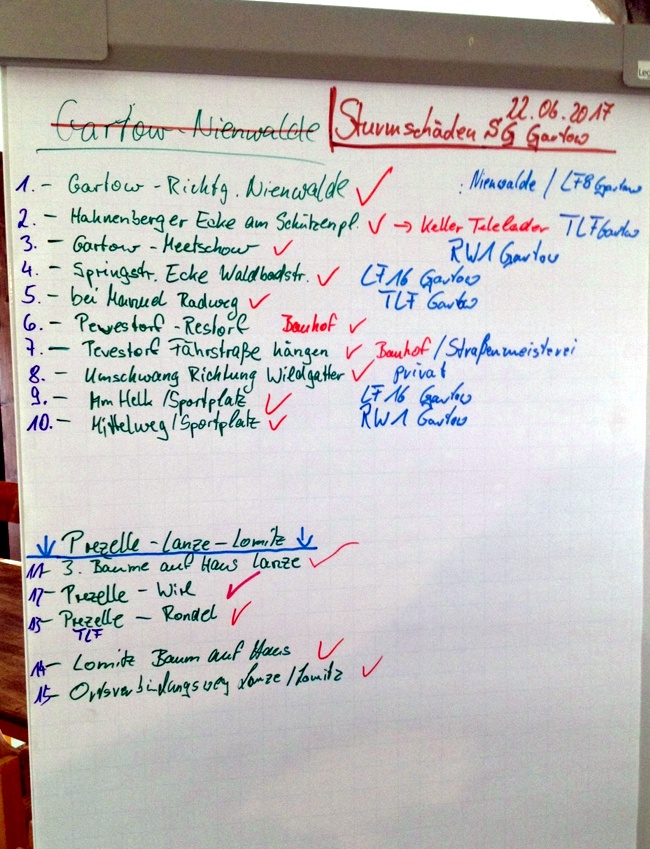 Gartow-Nienwalde
22.06.2017
Sturmschäden SG Gartow
1. - Gartow - Richtg. Nienwalde ✓ : Nienwalde / LF8 Gartow
2. - Hahnenberger Ecke am Schützenpl. ✓ → Keller Telelader TLF Gartow
3. - Gartow - Meetschow ✓ RW1 Gartow
4. - Springstr. Ecke Waldbadstr. ✓ LF16 Gartow
5. - bei Manuel Radweg ✓ TLF Gartow
6. - Pevestorf - Restorf Bauhof ✓
7. - Pevestorf Fährstraße hängen ✓ Bauhof / Straßenmeisterei
8. - Umschwang Richtung Wildgatter ✓ privat
9. - Am Helk / Sportplatz ✓ LF16 Gartow
10. - Mittelweg / Sportplatz ✓ RW1 Gartow
↓ Prezelle - Lanze - Lomitz ↓
11- 3. Bäume auf Haus Lanze ✓
12- Prezelle - Wirl ✓
13- Prezelle - Rondel ✓
TLF
14- Lomitz Baum auf Haus ✓
15- Ortsverbindungsweg Lanze / Lomitz ✓